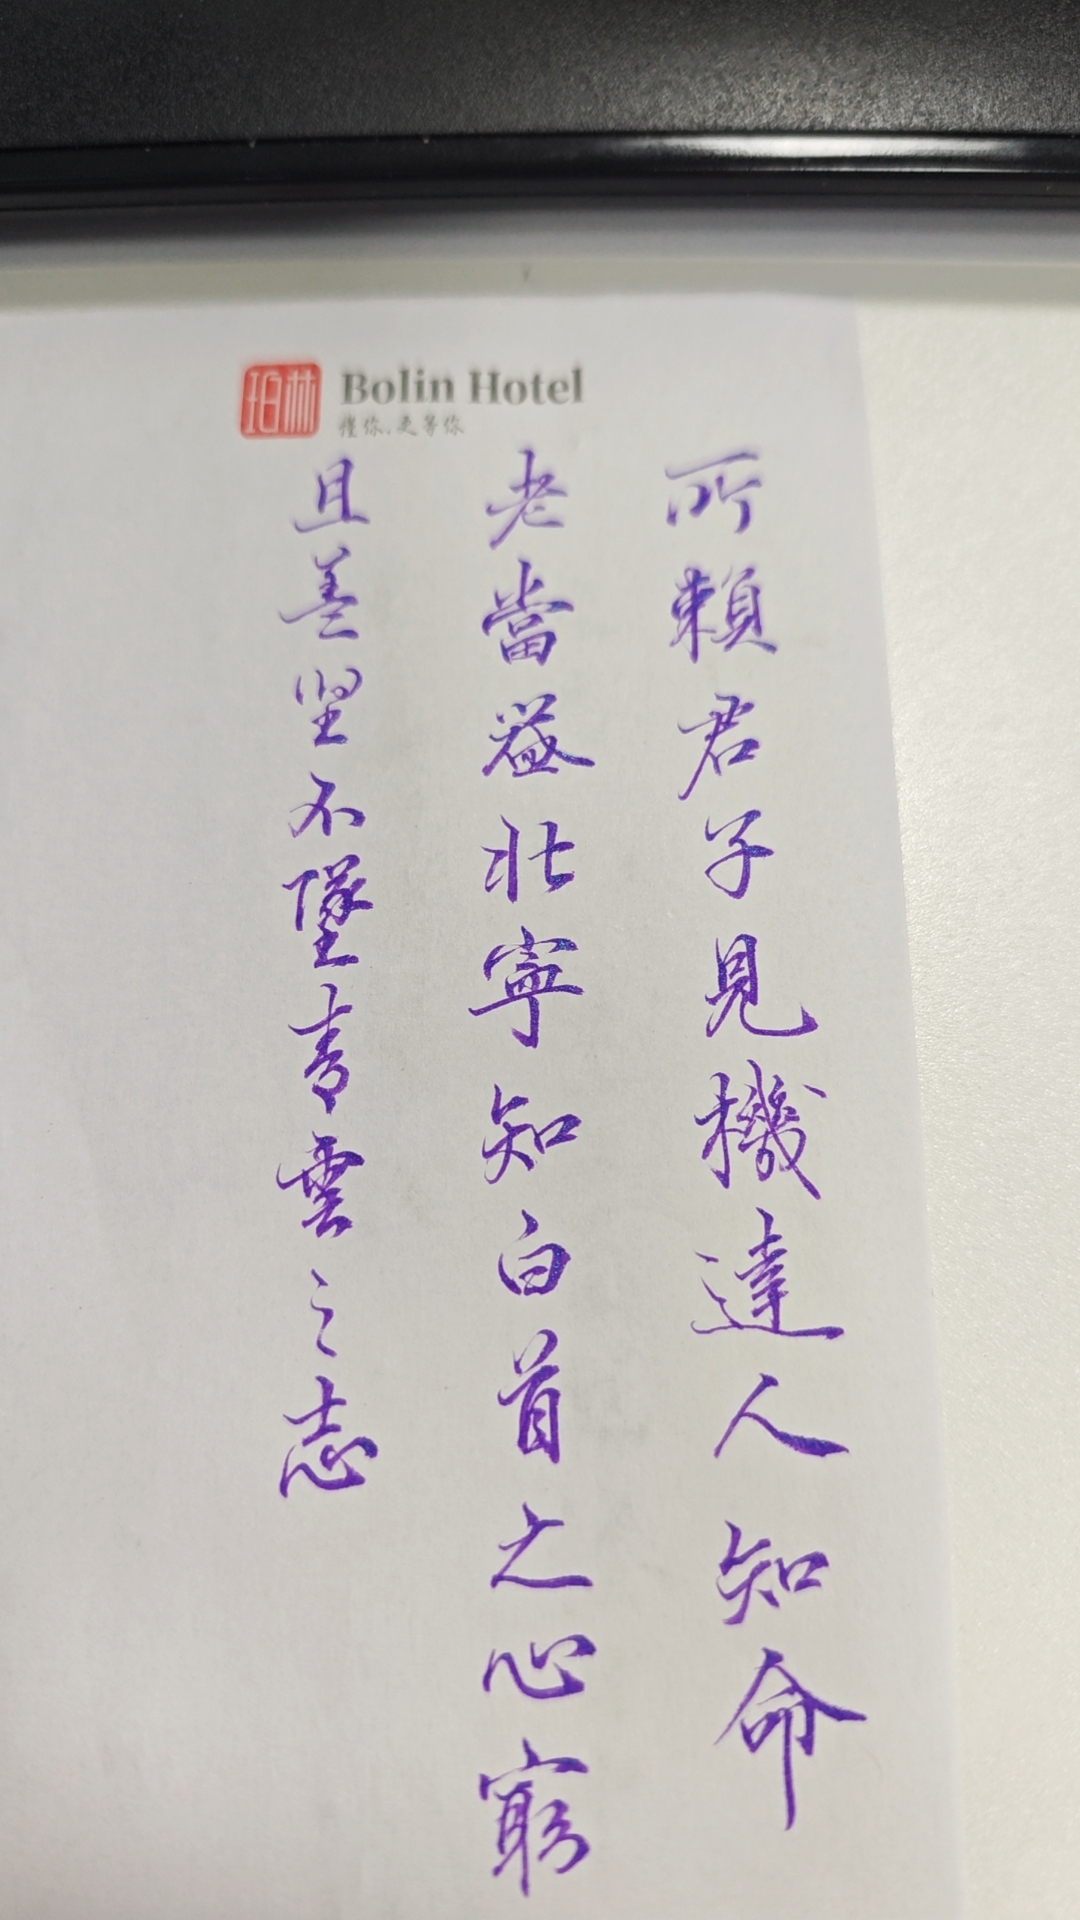 珀林
Bolin Hotel
懂你,更等你
所賴君子見機達人知命
老當益壯寧知白首之心窮
且益坚不墜青雲之志